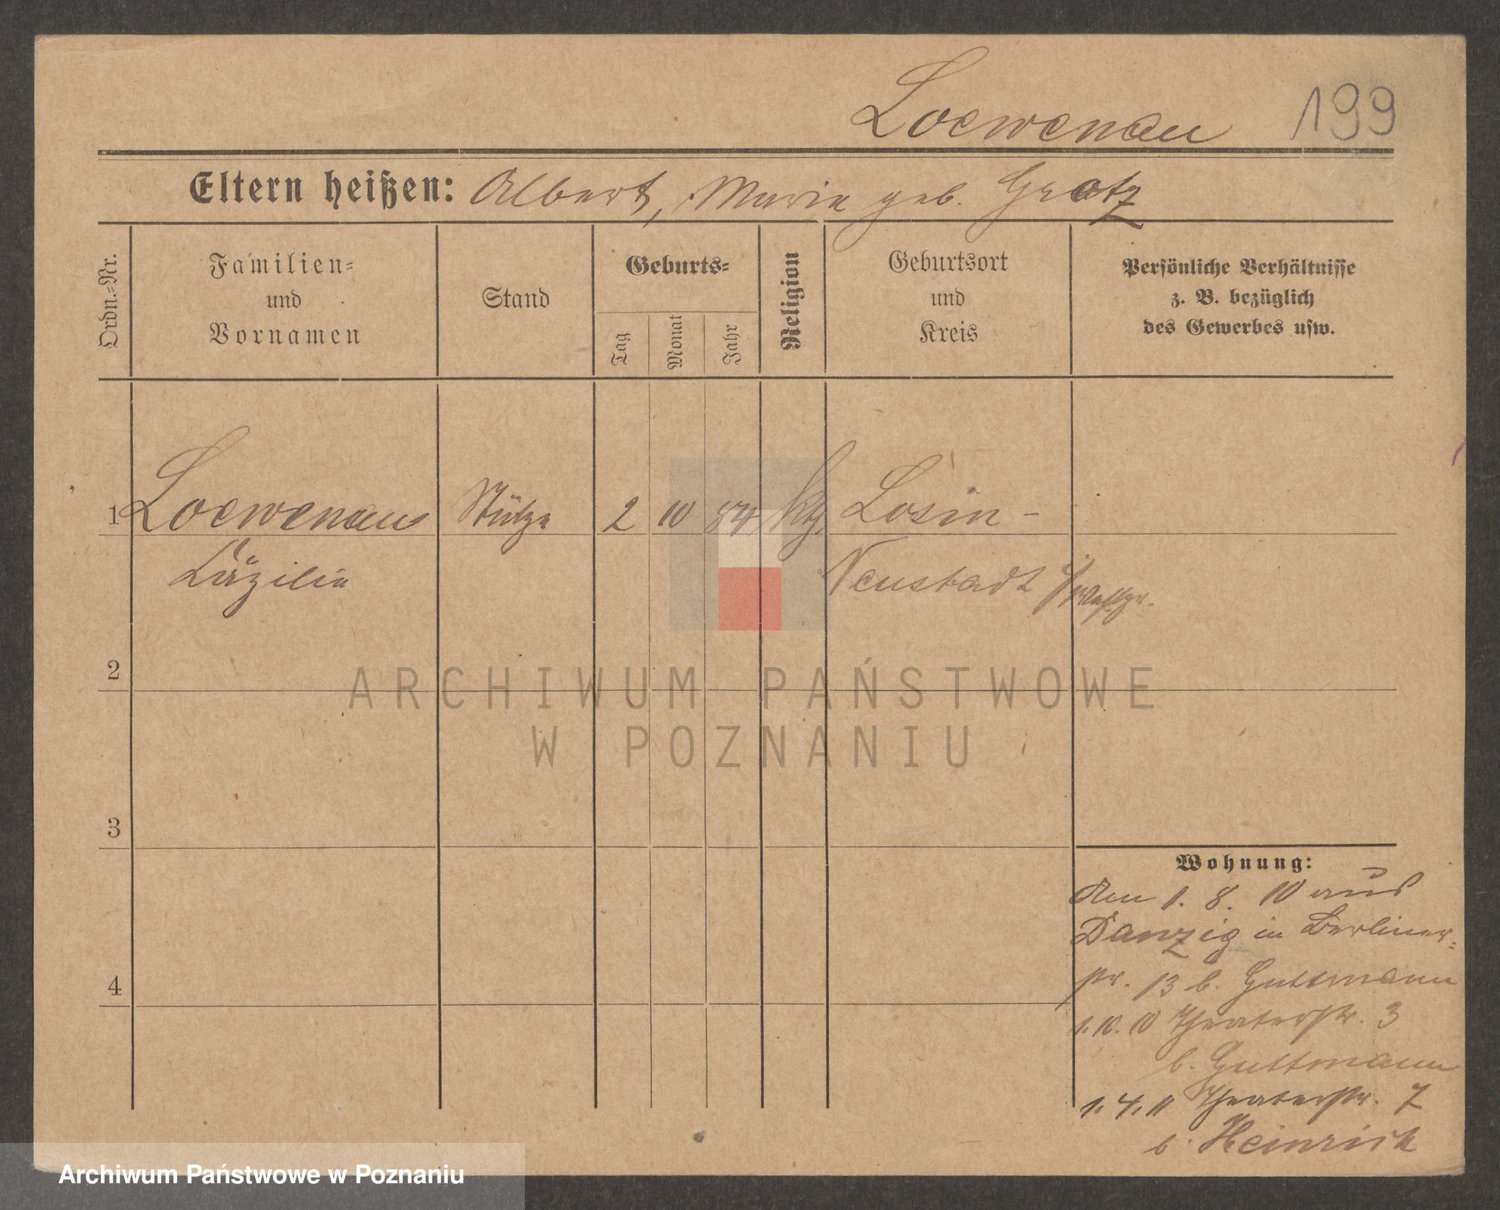 Loewenau 199
Eltern heißen: Albert, Maria geb. Gratz
Ordn.-Nr.
Familien-
und
Vornamen
Stand
Geburts-
Tag
Monat
Jahr
Religion
Geburtsort
und
Kreis
Persönliche Verhältnisse
z. B. bezüglich
des Gewerbes usw.
1 Loewenau Stütze 2 10 84 ktz Losin -
Läzilie Neustadt i/Westpr.
2
3
4
Wohnung:
den 1. 8. 10 aus
Danzig in Berliner-
str. 13 b. Guttmann
1. 10. 10 Theaterstr. 3
b. Guttmann
1. 4. 11 Theaterstr. 7
b. Heinrich
ARCHIWUM PAŃSTWOWE
W POZNANIU
Archiwum Państwowe w Poznaniu